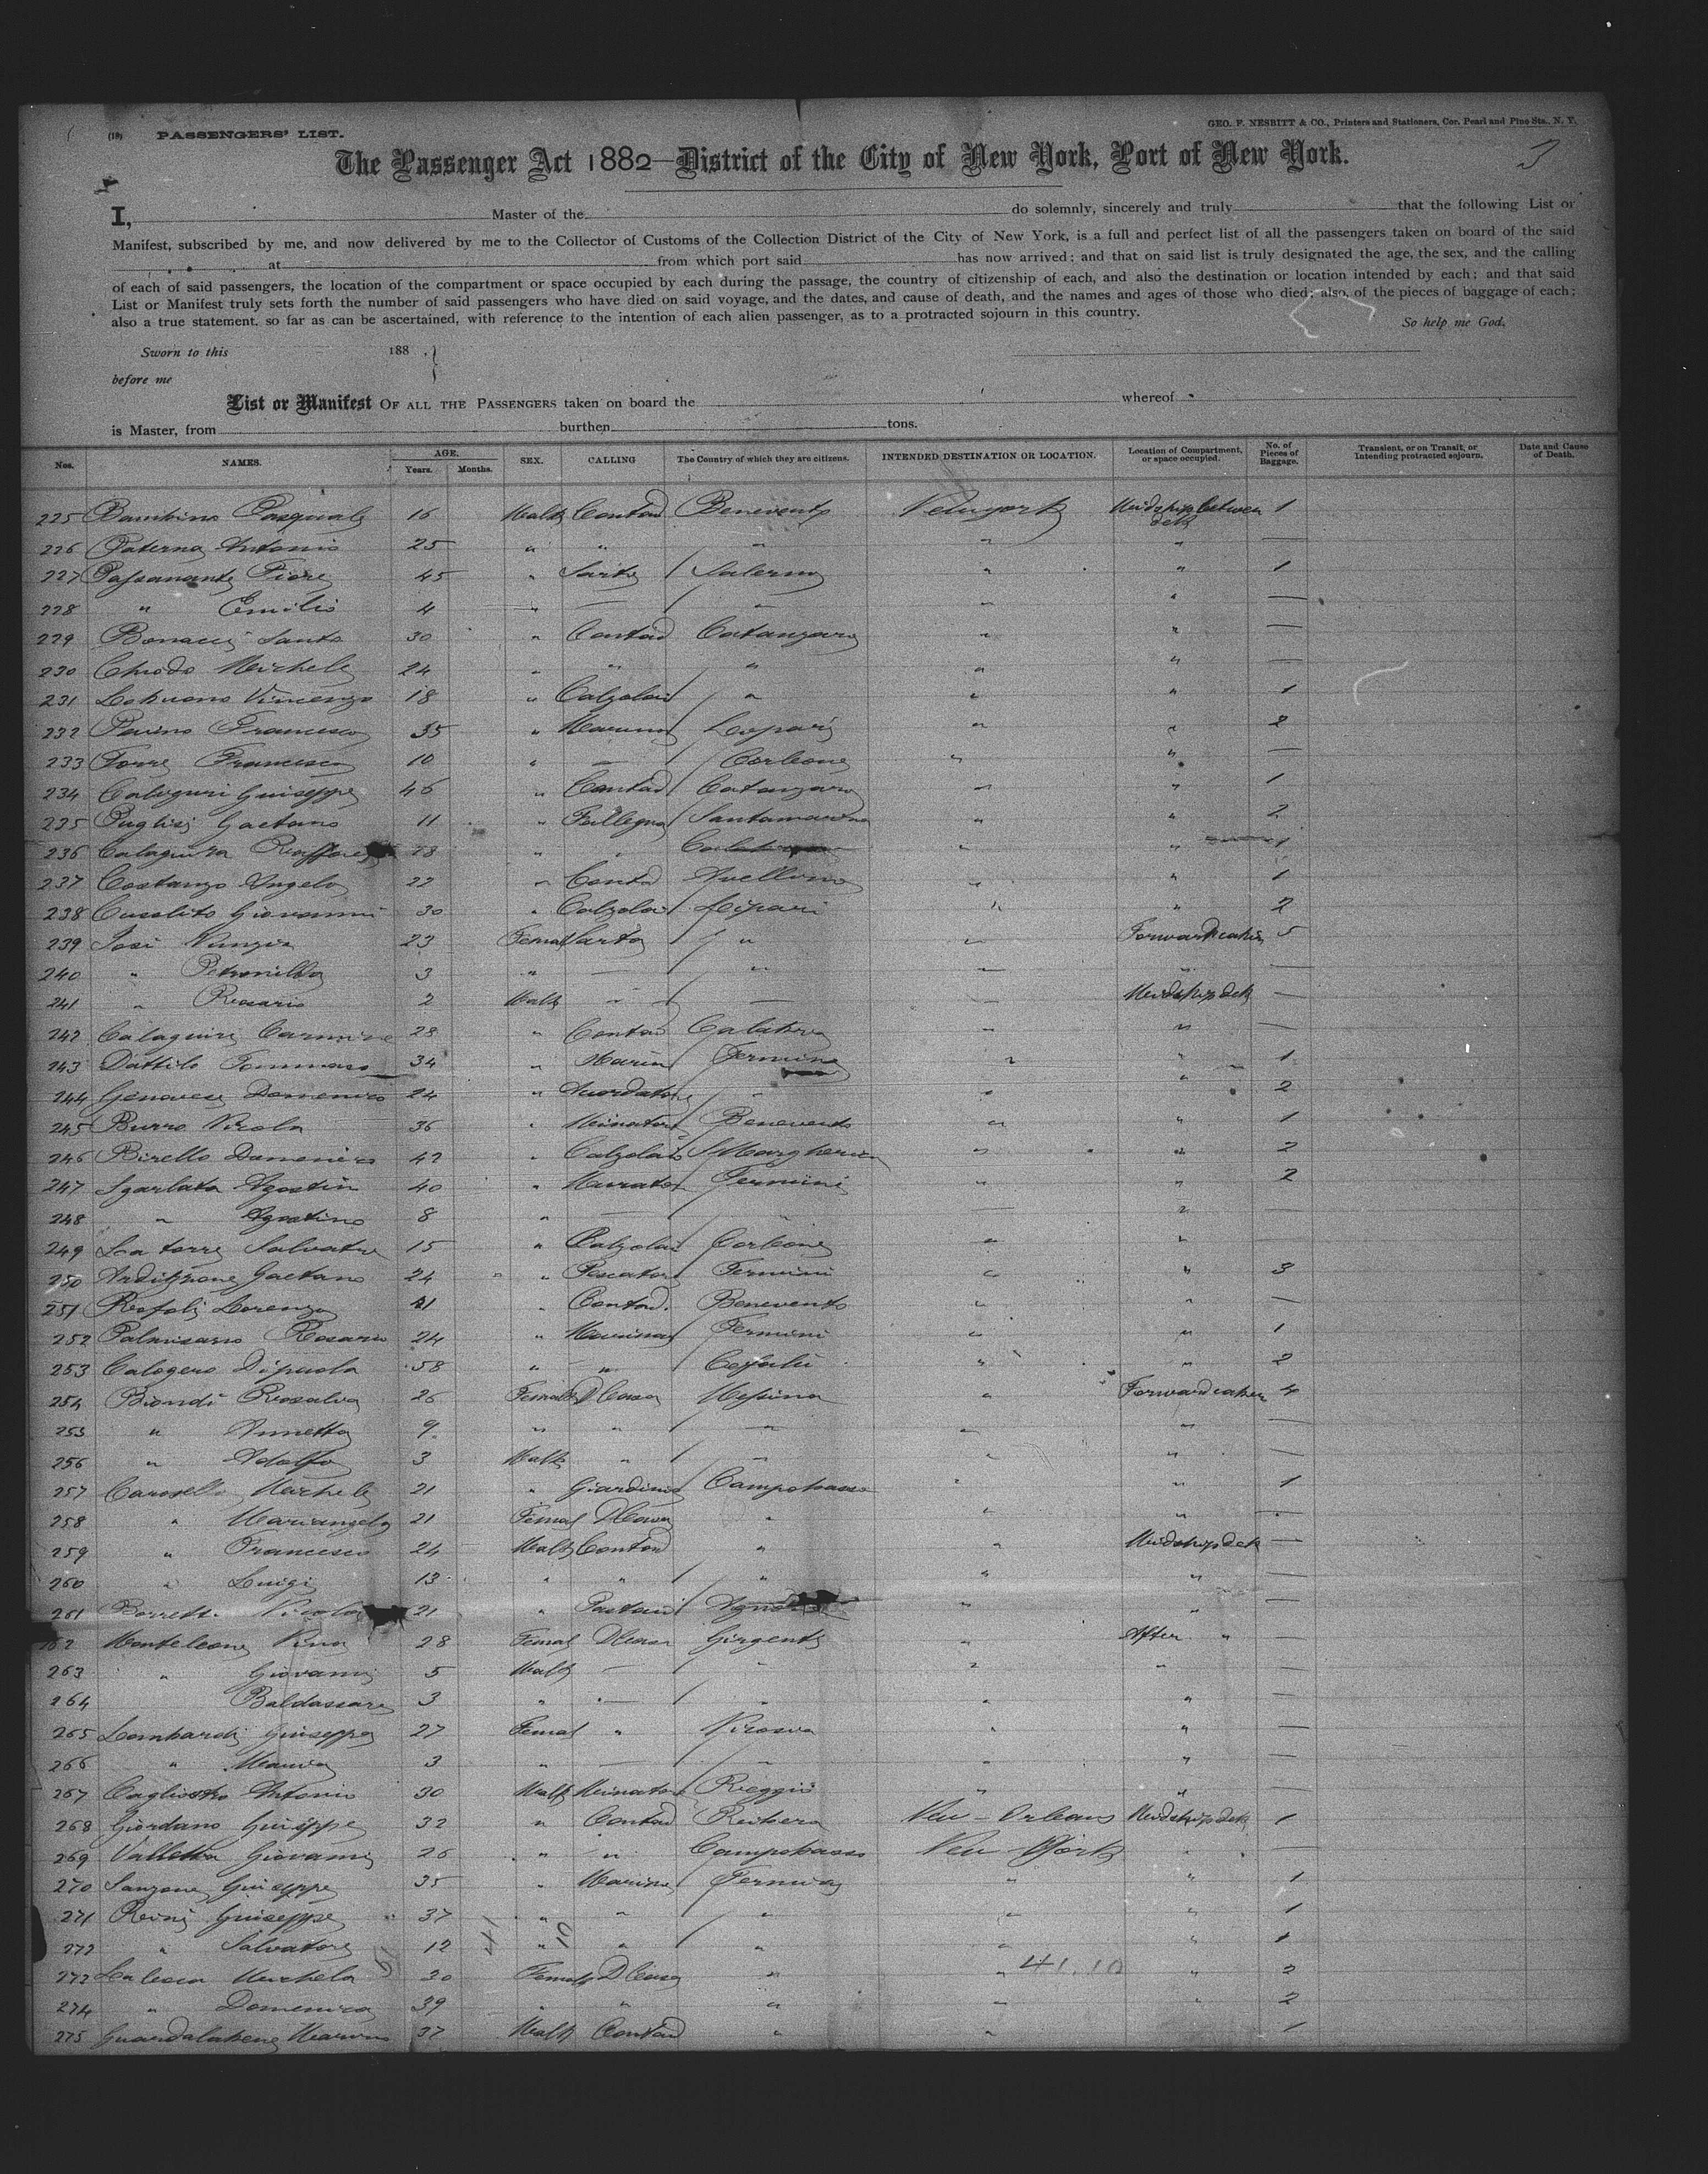 (18) PASSENGERS' LIST.
GEO. F. NESBITT & CO., Printers and Stationers, Cor. Pearl and Pine Sts., N. Y.
3
The Passenger Act 1882—District of the City of New York, Port of New York.
I, Master of the do solemnly, sincerely and truly that the following List or
Manifest, subscribed by me, and now delivered by me to the Collector of Customs of the Collection District of the City of New York, is a full and perfect list of all the passengers taken on board of the said
at from which port said has now arrived; and that on said list is truly designated the age, the sex, and the calling
of each of said passengers, the location of the compartment or space occupied by each during the passage, the country of citizenship of each, and also the destination or location intended by each; and that said
List or Manifest truly sets forth the number of said passengers who have died on said voyage, and the dates, and cause of death, and the names and ages of those who died; also, of the pieces of baggage of each;
also a true statement, so far as can be ascertained, with reference to the intention of each alien passenger, as to a protracted sojourn in this country.
So help me God.
Sworn to this 188 .
before me
List or Manifest OF ALL THE PASSENGERS taken on board the whereof
is Master, from burthen tons.
Nos. NAMES. AGE. Years. Months. SEX. CALLING The Country of which they are citizens. INTENDED DESTINATION OR LOCATION. Location of Compartment, or space occupied. No. of Pieces of Baggage. Transient, or on Transit, or Intending protracted sojourn. Date and Cause of Death.
225 Bambino Pasquale 16 Male Contad Benevento Newyork Midship between deck 1
226 Paterna Antonio 25 " " " " " —
227 Passanante Fiore 45 " Sarto Salerno " " 1
228 " Emilio 4 " — " " " —
229 Bonacci Santo 30 " Contad Catanzaro " " —
230 Chiodo Michele 24 " " " " " —
231 Vincenzo 18 " Calzolai " " " 1
232 Francesco 35 " Marina Lipari " " 2
233 Torre Francesco 10 " — Corleone " " —
234 Giuseppe 46 " Contad Catanzaro " " 1
235 Puglisi Gaetano 11 " Fallegna Santamarina " " 2
236 28 " " " " 1
237 Costanzo Angelo 22 " Contad Avellino " " 1
238 Cusolito Giovanni 30 " Calzolai Lipari " " 2
239 Nunzia 23 Femal Sarta " " 5
240 " Petronilla 3 " — " — " —
241 " Rosario 2 Male — — — Midship deck —
242 Calaguiri Carmine 28 " Contad " " —
243 Dattilo Tommaso 34 " Marin " " 1
244 Genovese Domenico 24 " " " 2
245 Burro Nicola 36 " Minatore Benevento " " 1
246 Birello Domenico 42 " Calzolaio S Margherita " " 2
247 Sgarlata Agostin 40 " Murator Termini " " 2
248 " Agostino 8 " — " — " —
249 La torre Salvatore 15 " Calzolai Corleone " "
250 Ardizzone Gaetano 24 " Pescatore Termini " " 3
251 Lorenzo 21 " Contad. Benevento " " —
252 Palmisano Rosario 24 " Marina Termini " " 1
253 Calogero Dipuola 58 " " Cefalù " " 2
254 Biondi Rosalia 26 Female DCasa Messina " 4
255 " Annetta 9 " " " " " —
256 " Adolfo 3 Male " " " " —
257 Carosella Michele 21 " Giardin Campobasso " " 1
258 " Mariangela 21 Femal DCasa " " " —
259 " Francesco 24 Male Contad " " Midship deck —
260 " Luigi 13 " " " " " —
261 Nicola 21 " " " —
262 Monteleone 28 Femal DCasa Girgenti " After " —
263 " Giovanni 5 Male — " " " —
264 Baldassare 3 " — " " " —
265 Lombardi Giuseppa 27 Femal " " " —
266 " Maria 3 " — " " " —
267 Antonio 30 Male Minatore Reggio " " —
268 Giordano Giuseppe 32 " Contad New-Orleans Midship deck 1
269 Valletta Giovanni 26 " " Campobasso New York " —
270 Sanzone Giuseppe 35 " Marina Termini " " 1
271 Reini Giuseppe 37 " " " " " 1
272 " Salvatore 12 " " " " " 1
273 Michela 30 Female DCasa " " " 2
41.10
274 " Domenica 39 " " " " " 2
275 37 Male Contad " " 1